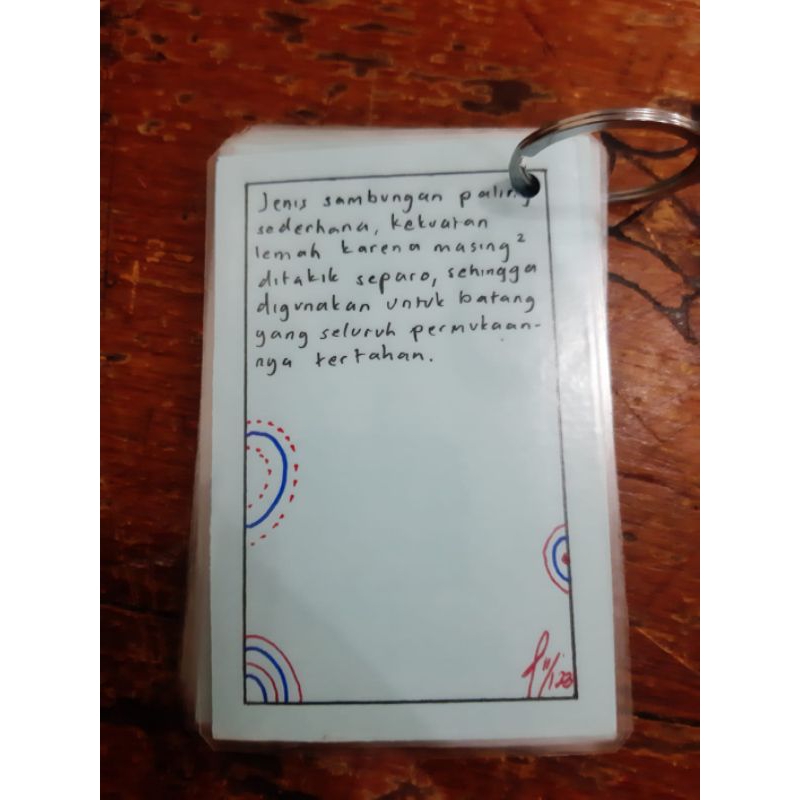 Jenis sambungan paling
sederhana, kekuatan
lemah karena masing²
ditakik separo, sehingga
digunakan untuk batang
yang seluruh permukaan-
nya tertahan.